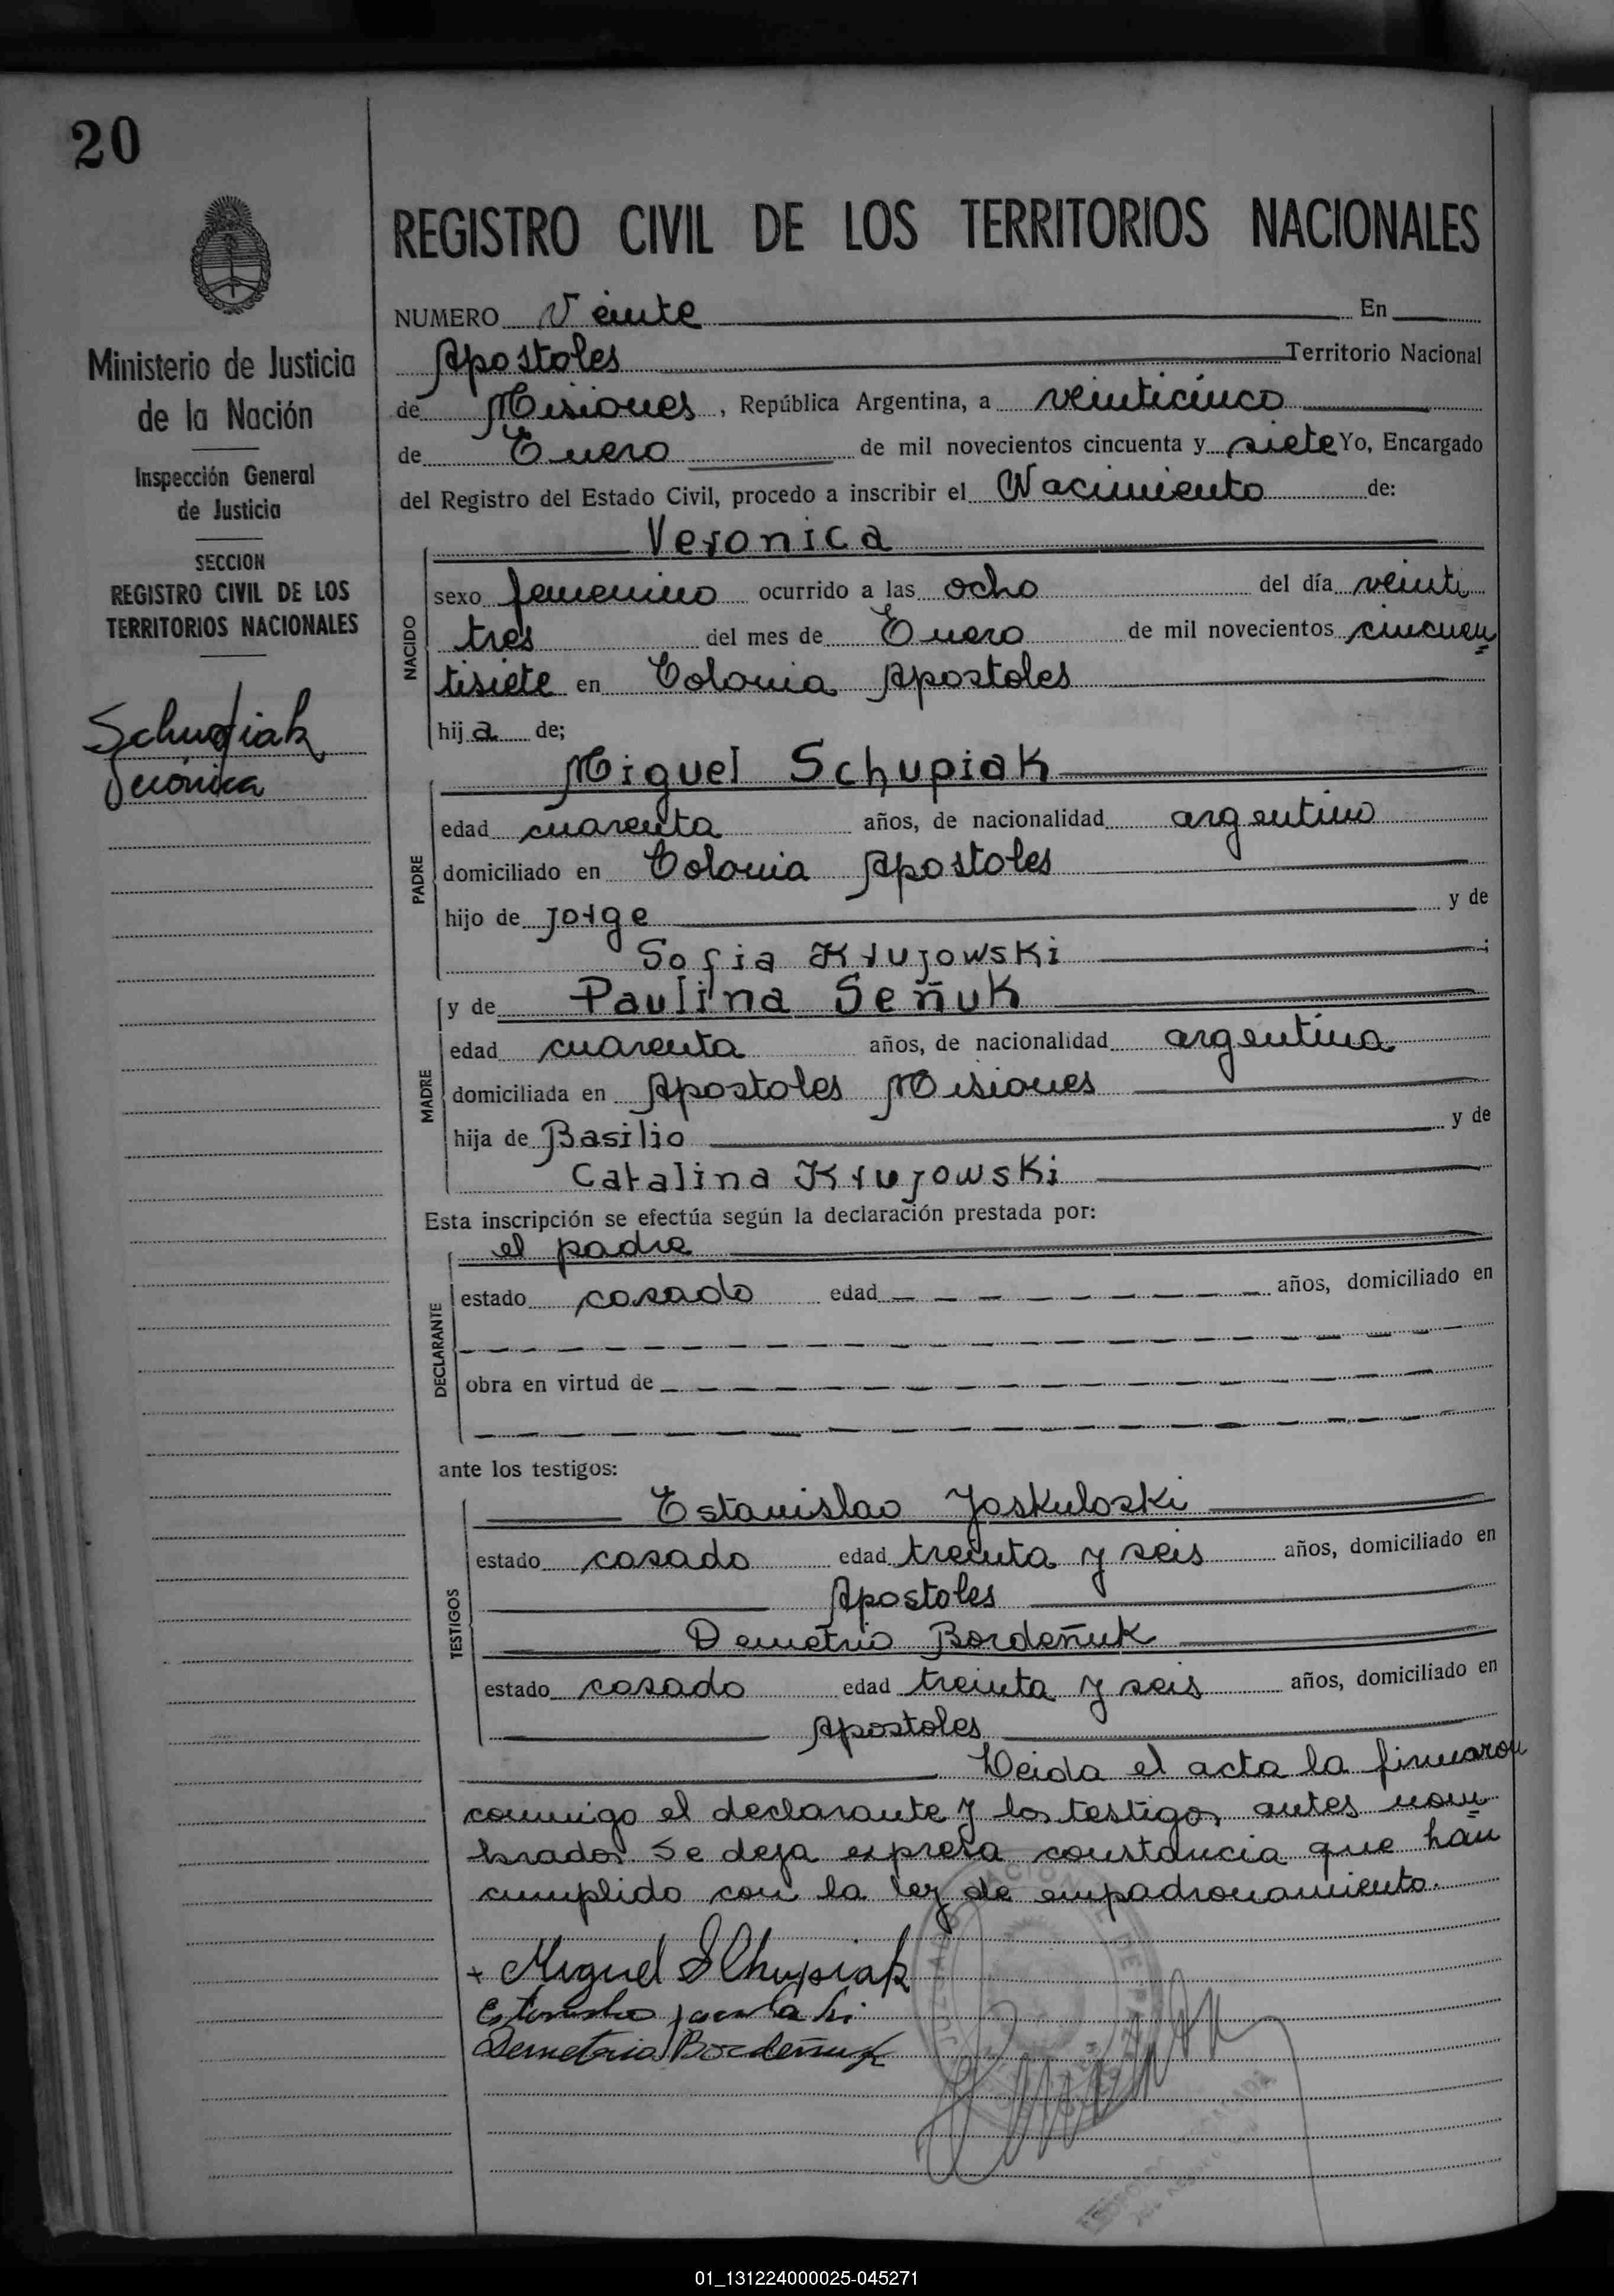 20
REGISTRO CIVIL DE LOS TERRITORIOS NACIONALES
Ministerio de Justicia
de la Nación
Inspección General
de Justicia
SECCION
REGISTRO CIVIL DE LOS
TERRITORIOS NACIONALES
Schupiak
Verónica
NUMERO Veinte En
Apostoles Territorio Nacional
de Misiones, República Argentina, a veinticinco
de Enero de mil novecientos cincuenta y siete Yo, Encargado
del Registro del Estado Civil, procedo a inscribir el Nacimiento de:
Veronica
NACIDO
sexo femenino ocurrido a las ocho del día veinti
tres del mes de Enero de mil novecientos cincuen=
tisiete en Colonia Apostoles
hija de;
Miguel Schupiak
PADRE
edad cuarenta años, de nacionalidad argentino
domiciliado en Colonia Apostoles
hijo de Jorge y de
Sofia Krujowski;
MADRE
y de Paulina Señuk
edad cuarenta años, de nacionalidad argentina
domiciliada en Apostoles Misiones
hija de Basilio y de
Catalina Krujowski
Esta inscripción se efectúa según la declaración prestada por:
el padre
DECLARANTE
estado casado edad años, domiciliado en
obra en virtud de
ante los testigos:
Estanislao Jaskuloski
TESTIGOS
estado casado edad treinta y seis años, domiciliado en
Apostoles
Demetrio Bordeñuk
estado casado edad treinta y seis años, domiciliado en
Apostoles
Leida el acta la firmaron
conmigo el declarante y los testigos antes nom=
brados Se deja expresa constancia que han
cumplido con la ley de empadronamiento.
+ Miguel SChupiak
Demetrio Bordeñuk
01_131224000025-045271